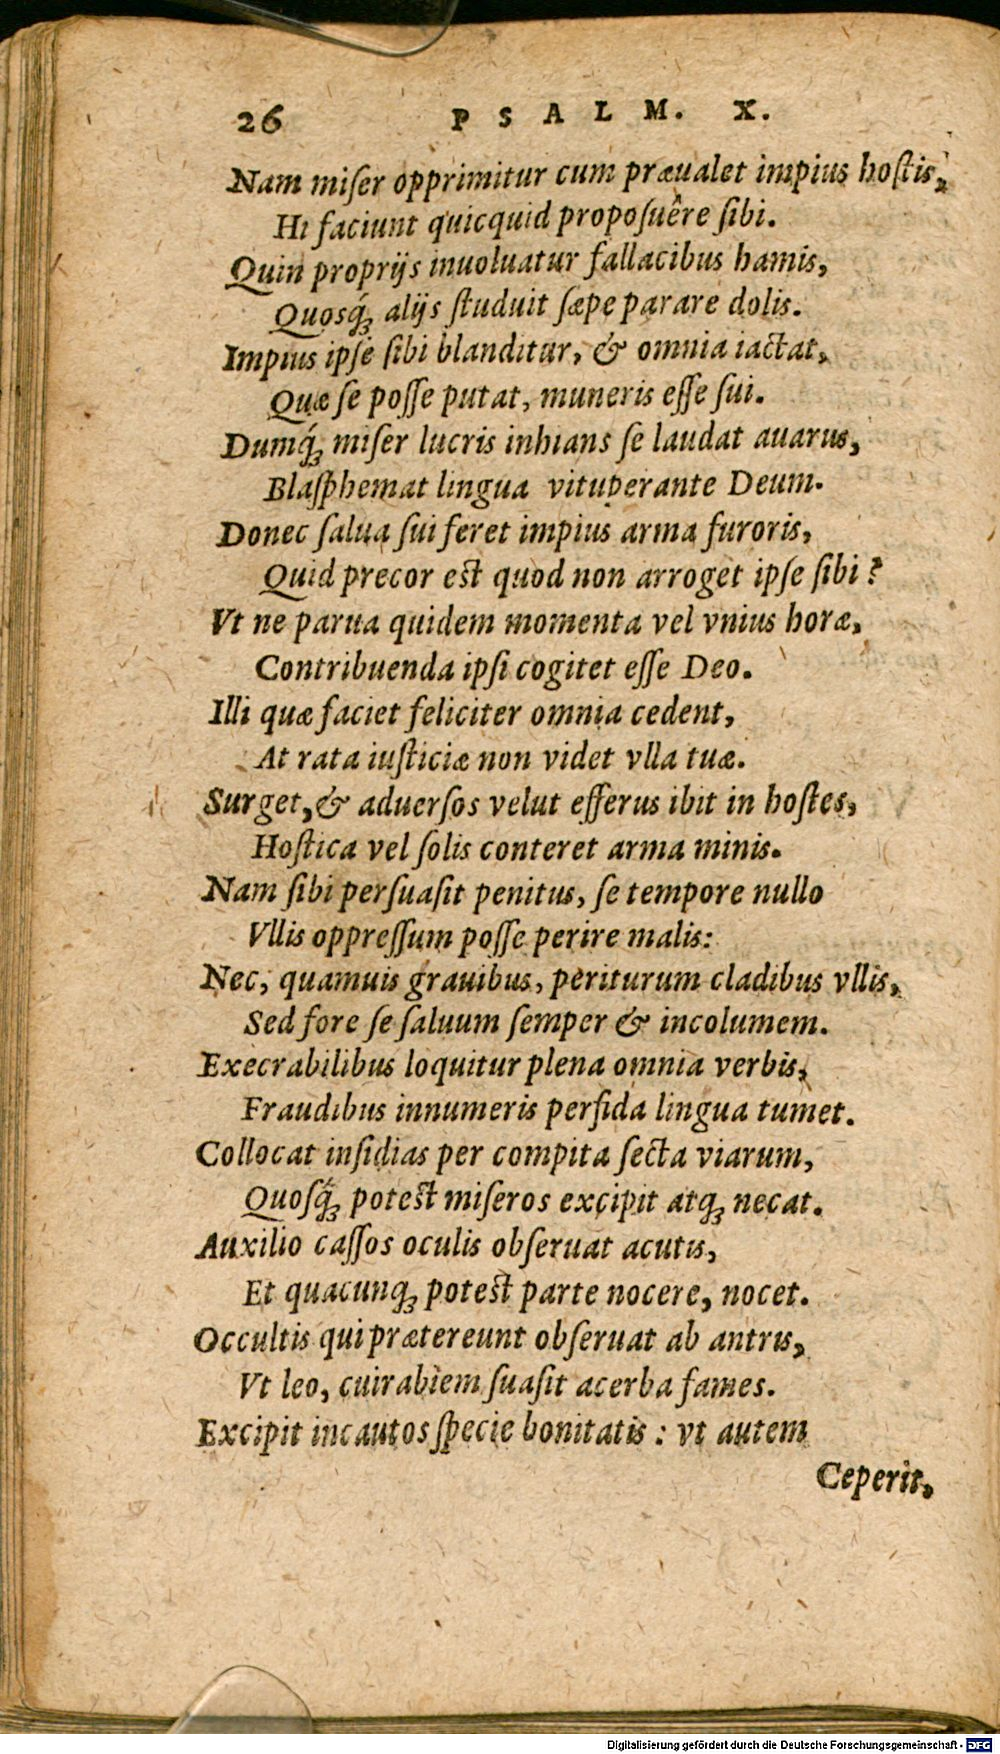 26 PSALM. X.
Nam miſer opprimitur cum præualet impius hoſtis,
Hi faciunt quicquid propoſuêre ſibi.
Quin proprijs inuoluatur fallacibus hamis,
Quosq́ꝫ alijs ſtuduit ſæpe parare dolis.
Impius ipſe ſibi blanditur, & omnia iactat,
Quæ ſe poſſe putat, muneris eſſe ſui.
Dumq́ꝫ miſer lucris inhians ſe laudat auarus,
Blaſphemat lingua vituperante Deum.
Donec ſalua ſui feret impius arma furoris,
Quid precor eſt quod non arroget ipſe ſibi?
Vt ne parua quidem momenta vel vnius horæ,
Contribuenda ipſi cogitet eſſe Deo.
Illi quæ faciet feliciter omnia cedent,
At rata iuſticiæ non videt vlla tuæ.
Surget, & aduerſos velut efferus ibit in hoſtes,
Hoſtica vel ſolis conteret arma minis.
Nam ſibi perſuaſit penitus, ſe tempore nullo
Vllis oppreſſum poſſe perire malis:
Nec, quamuis grauibus, periturum cladibus vllis,
Sed fore ſe ſaluum ſemper & incolumem.
Execrabilibus loquitur plena omnia verbis,
Fraudibus innumeris perfida lingua tumet.
Collocat inſidias per compita ſecta viarum,
Quoſq́ꝫ poteſt miſeros excipit atqꝫ necat.
Auxilio caſſos oculis obſeruat acutis,
Et quacunqꝫ poteſt parte nocere, nocet.
Occultis qui prætereunt obſeruat ab antris,
Vt leo, cui rabiem ſuaſit acerba fames.
Excipit incautos ſpecie bonitatis: vt autem
Ceperit,
Digitalisierung gefördert durch die Deutsche Forschungsgemeinschaft - DFG